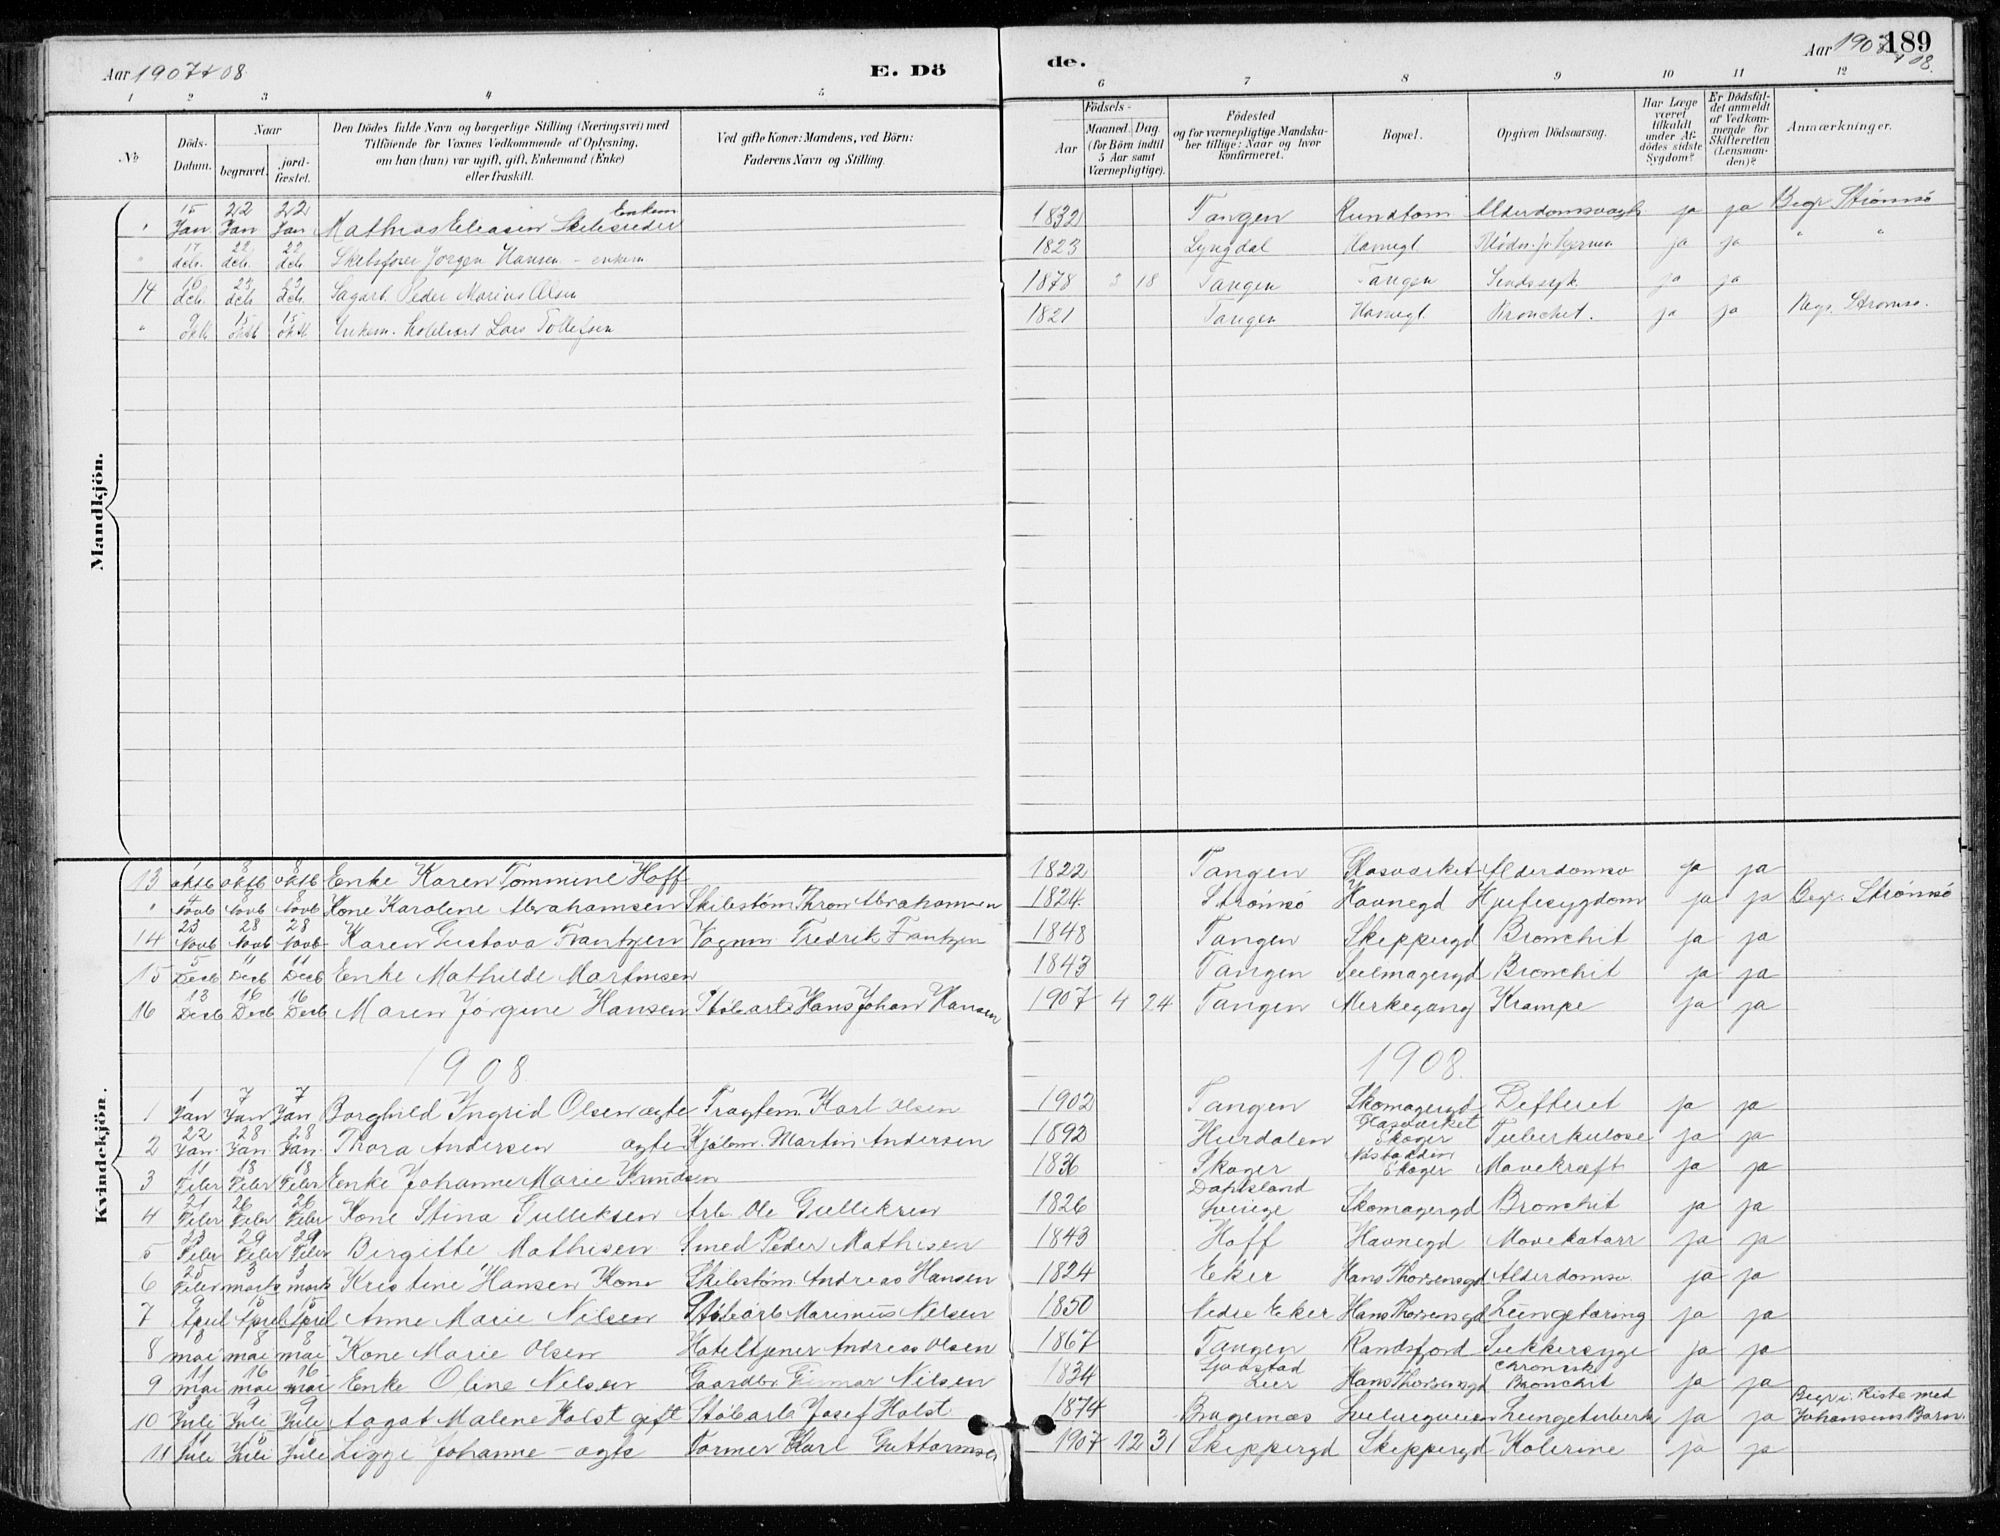 Aar 1907 & 08
E. Dö
de.
Aar 1907 & 08.
189
1 2 3 4 5 6 7 8 9 10 11 12
No
Döds-Datum.
Naar
begravet.
jord-fæstet.
Den Dödes fulde Navn og borgerlige Stilling (Næringsvei) med
Tilföiende for Voxnes Vedkommende af Oplysning,
om han (hun) var ugift, gift, Enkemand (Enke)
eller fraskilt.
Ved gifte Koner: Mandens, ved Börn:
Faderens Navn og Stilling.
Födsels-
Aar
Maaned. Dag.
(for Börn indtil
5 Aar samt
Værnepligtige).
Födested
og for værnepligtige Mandska-
ber tillige: Naar og hvor
konfirmeret.
Bopæl.
Opgiven Dödsaarsag.
Har Læge
været
tilkaldt
under Af-
dödes sidste
Sygdom?
Er Dödsfal-
det anmeldt
af Vedkom-
mende for
Skifteretten
(Lensman-
den)?
Anmærkninger.
Mandkjön.
" 15 Jan 22 Jan 22 Jan Mathias Eliasen Skibsreder Enkem 1832 Tangen Rundtom Alderdomssvagh ja ja Begr Strømsø
" 17 dch. 22 dch 22 dch Skibsfører Jørgen Hansen - enkem 1823 Lyngdal Havnegt ja ja " "
14 dch. 23 dch 23 dch Sagarb. Peder Marius Olsen 1878 3 18 Tangen Tangen ja ja
" 9 oktb 15 oktb 15 oktb Enkem. Lars Tollefsen 1821 Tangen Havnegt Bronchit. ja ja Begr. Strømsø.
Kvindekjön.
13 1 oktb 8 oktb 8 oktb Enke Karen Tommine Hoff 1822 Tangen Glasværket Alderdomsv ja ja
" Novb 8 Novb 8 Novb Kone Karoline Abrahamsen Skibstøm Thron Abrahamsen 1824. Strømsø Havnegd Hjertesygdom ja ja Begr. Strømsø
14 23 Novb 28 Novb 28 Novb Karen Gustava Frantzen Vognm Fredrik Frantzen 1848 Tangen Skippergd Bronchit ja ja
15 5 Decb 11 Decb 11 Decb Enke Mathilde Martinsen 1843 Tangen Seilmagergd Bronchit ja ja
16 13 Decb 16 Decb 16 Decb Maren Jørgine Hansen Støbarb Hans Johan Hansen 1907 4 24 Tangen Merkegang Krampe ja ja
1908 1908.
1 1 Jan 7 Jan 7 Jan Borghild Ingrid Olsen ægte Fragtem Karl Olsen 1902 Tangen Skomagergd Difterit ja ja
2 22 Jan. 28 Jan 28 Jan. Thora Andersen ægte Kjølem. Martin Andersen 1892 Hurdalen Glasværket Skoger Tuberkulose ja ja
3 11 Febr 18 Febr 18 Febr Enke Johanne Marie Knudsen 1836 Skoger Skoger Mavekræft ja ja
4 21 Febr 26 Febr 26 Febr Kone Stina Gulliksen Arb. Ole Gulliksen 1826 Dahlsland Sverige Skomagergd Bronchit ja ja
5 23 Febr 29 Febr 29 Febr Birgitte Mathisen Smed Peder Mathisen 1843 Hoff Havnegd Mavekatarr ja ja
6 25 Febr 3 marts 3 marts Kristine Hansen Kone Skibstøm. Andreas Hansen 1824 Eker Hans Thorsensgd Alderdomsv. ja ja
7 9 April 15 April 15 April Anne Marie Nilsen Støbarb Marinius Nilsen 1850 Nedre Eker Hans Thorsensgd Lungetæring ja ja
8 mai 8 mai 8 mai Kone Marie Olsen Hoteltjener Andreas Olsen 1867 Tangen Randsfjord Sukkersyge ja ja
9 11 mai 16 mai 16 mai Enke Oline Nilsen Gaardbr. Nilsen 1834 Lier Hans Thorsensgd Chronisk Bronchit ja ja
10 Juli 9 Juli 9 Juli Aagot Malene Holst gift Støbarb Josef Holst 1874 Bragernæs Svelvigveien Lungetuberk ja ja Begr i Kiste med Johansens Barn.
11 11 Juli 15 Juli 15 Juli Ligge Johanne - ægte Former Karl Guttormsen 1907 12 31 Skippergd Skippergd Kolerine ja ja